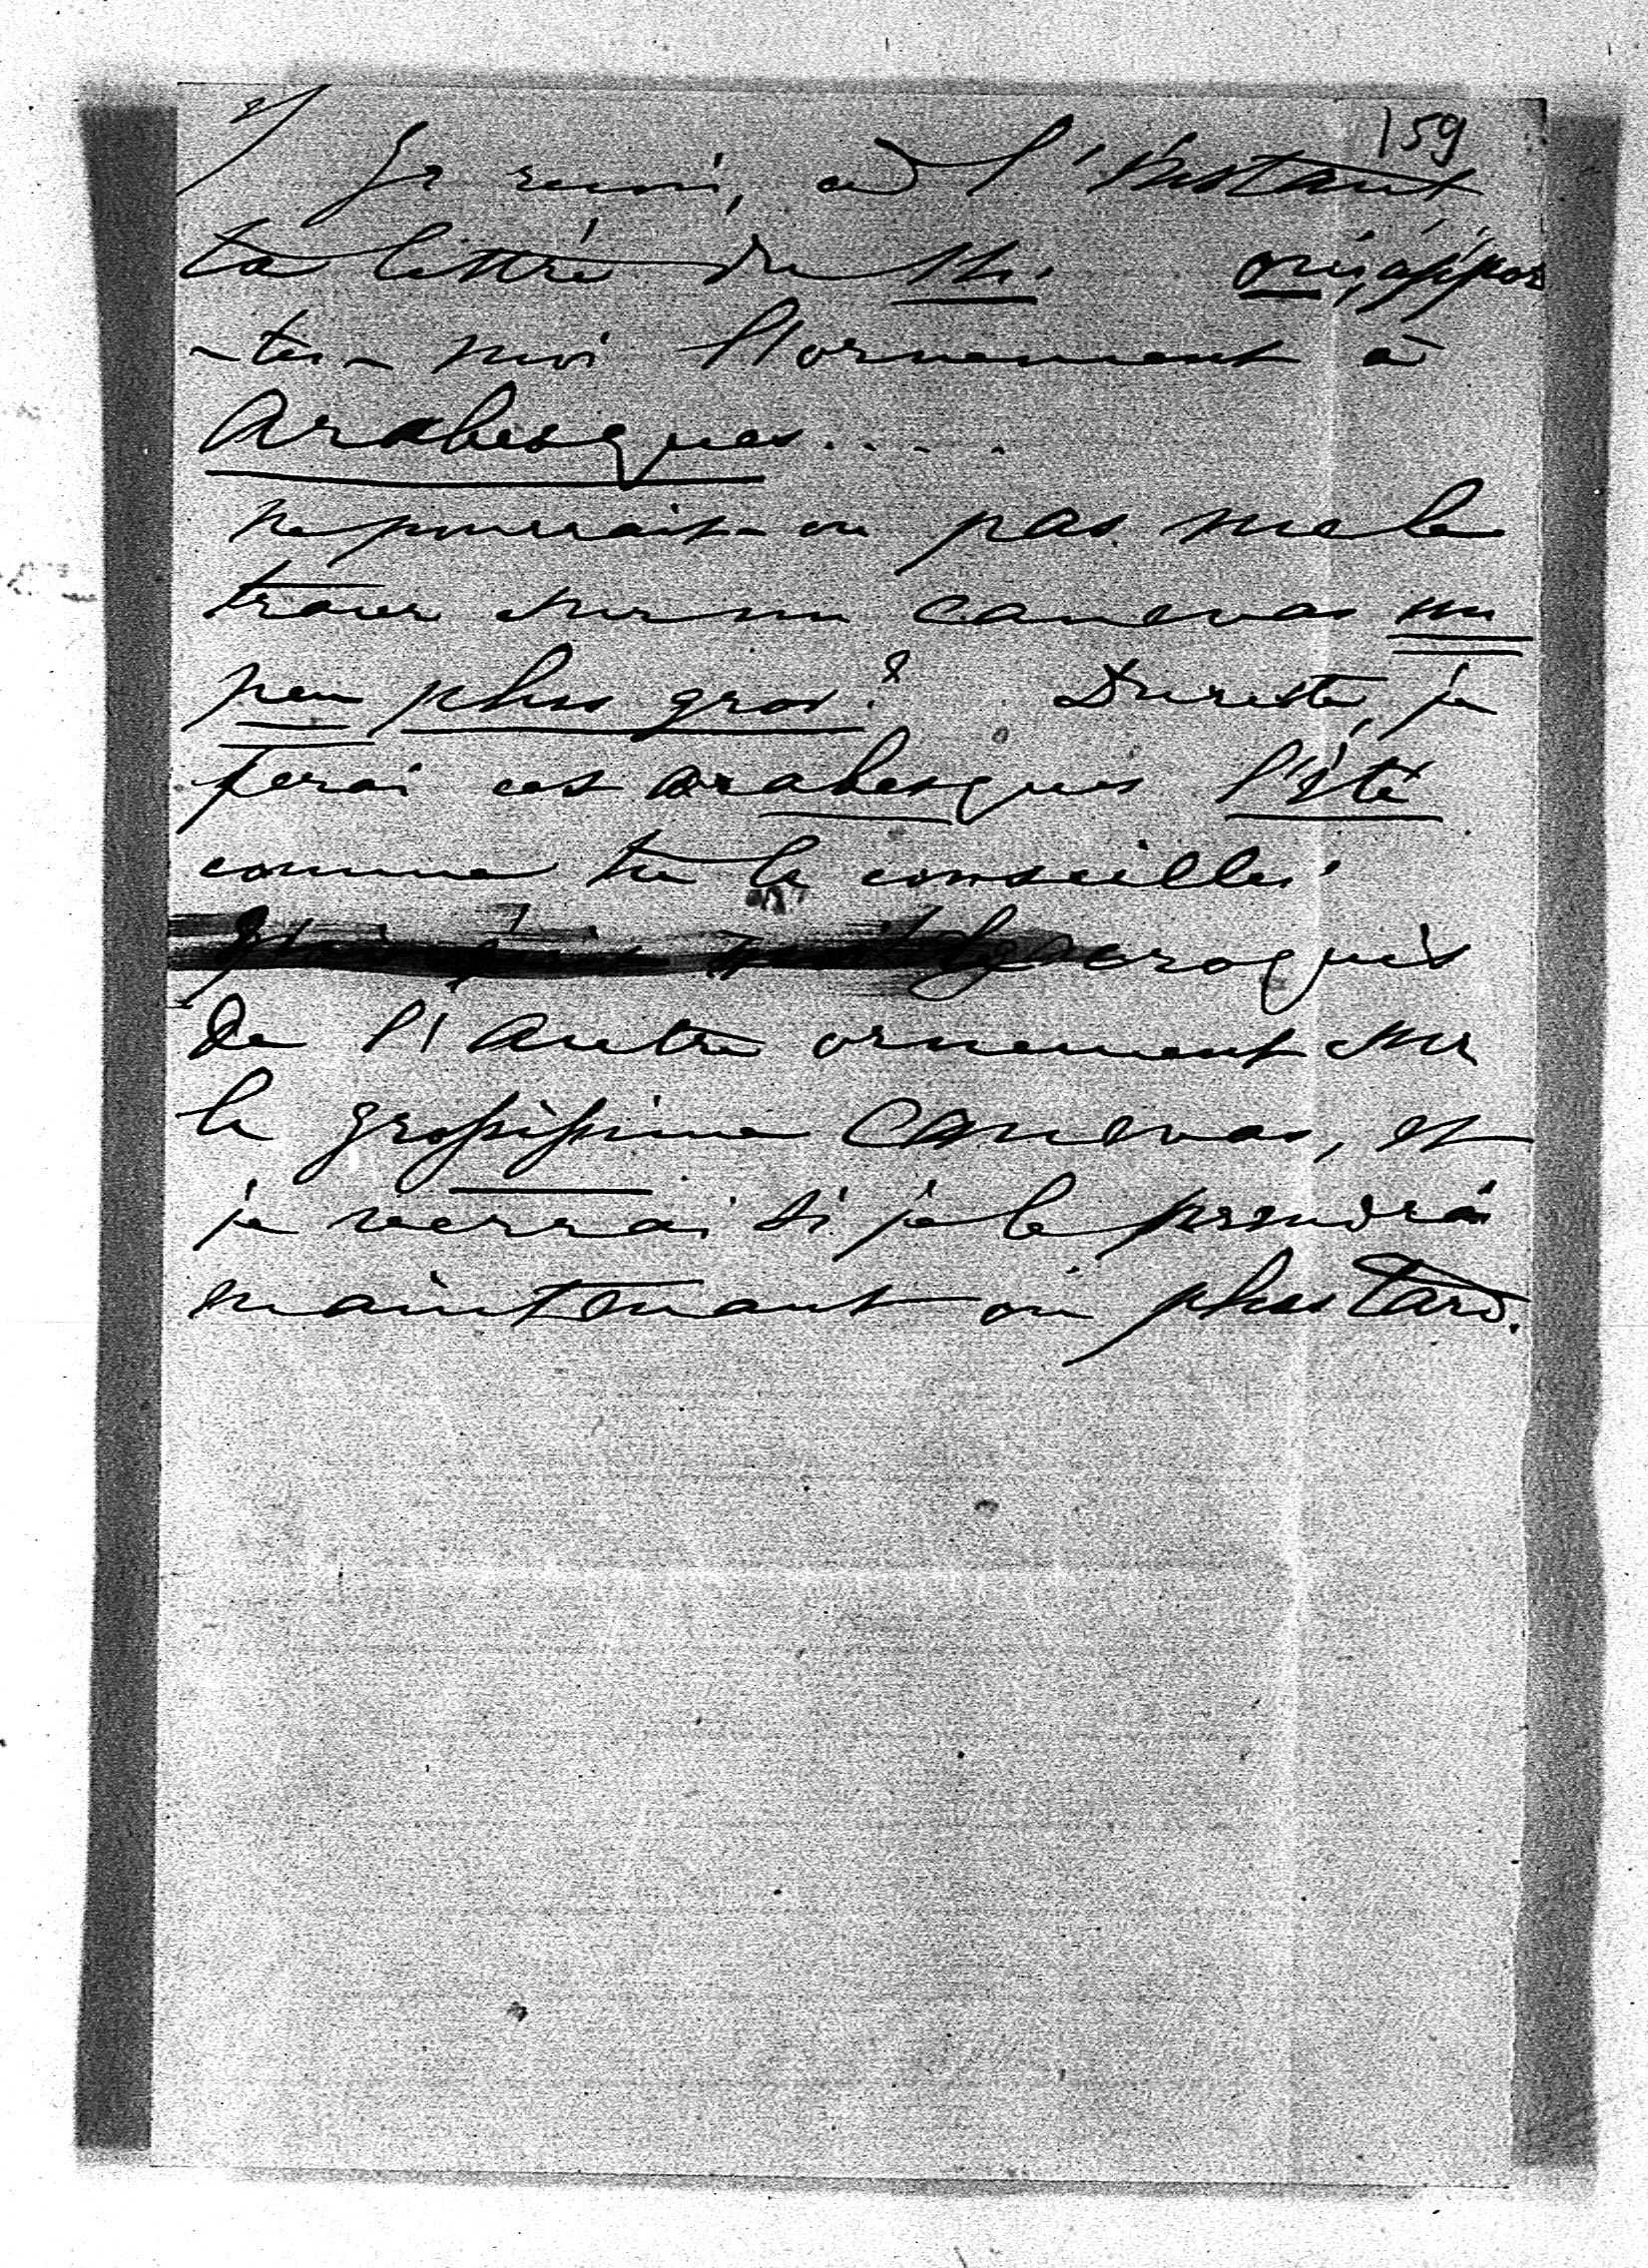 2/
159
Je reçois, à l'instant
ta lettre du 11. oui, appor
-tes-moi l'ornement à
Arabesques.....
ne pourrait-on pas me le
tracer sur un canevas un
peu plus gros? Du reste, je
ferai ces arabesques l'été
comme tu le conseilles.
croquis
De l'autre ornement sur
le grossissime canevas, et
je verrai si je le prendrai
maintenant ou plus tard.